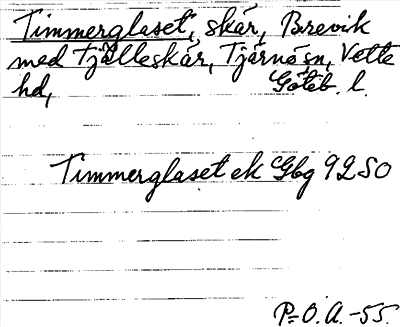 Timmerglaset, skär, Brevik
med Tjälleskär, Tjärnösn, Vette
hd, Göteb. l.
Timmerglaset ek Gbg 92 SO
P-O. A. -55.